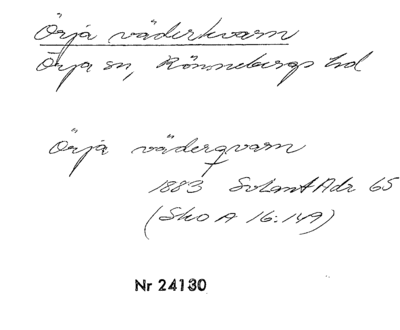 Örja väderkvarn
Örja sn, Rönnebergs hd
Örja väderqvarn
1883 SvLantAdr 65
(Sko A 16:149)
Nr 24130